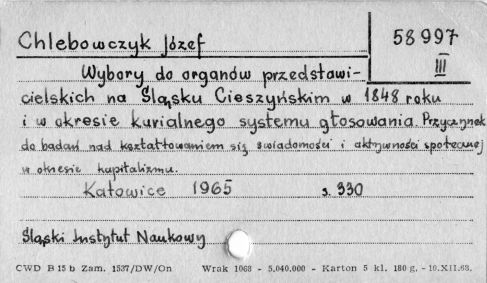 Chlebowczyk Józef
58997
III
Wybory do organów przedstawi-
cielskich na Śląsku Cieszyńskim w 1848 roku
i w okresie kurialnego systemu głosowania. Przyczynek
do badań nad kształtowaniem się świadomości i aktywności społecznej
w okresie kapitalizmu.
Katowice 1965 s. 330
Śląski Instytut Naukowy
CWD B 15 b Zam. 1537/DW/On Wrak 1068 - 5.040.000 - Karton 5 kl. 180 g. - 10.XII.68.